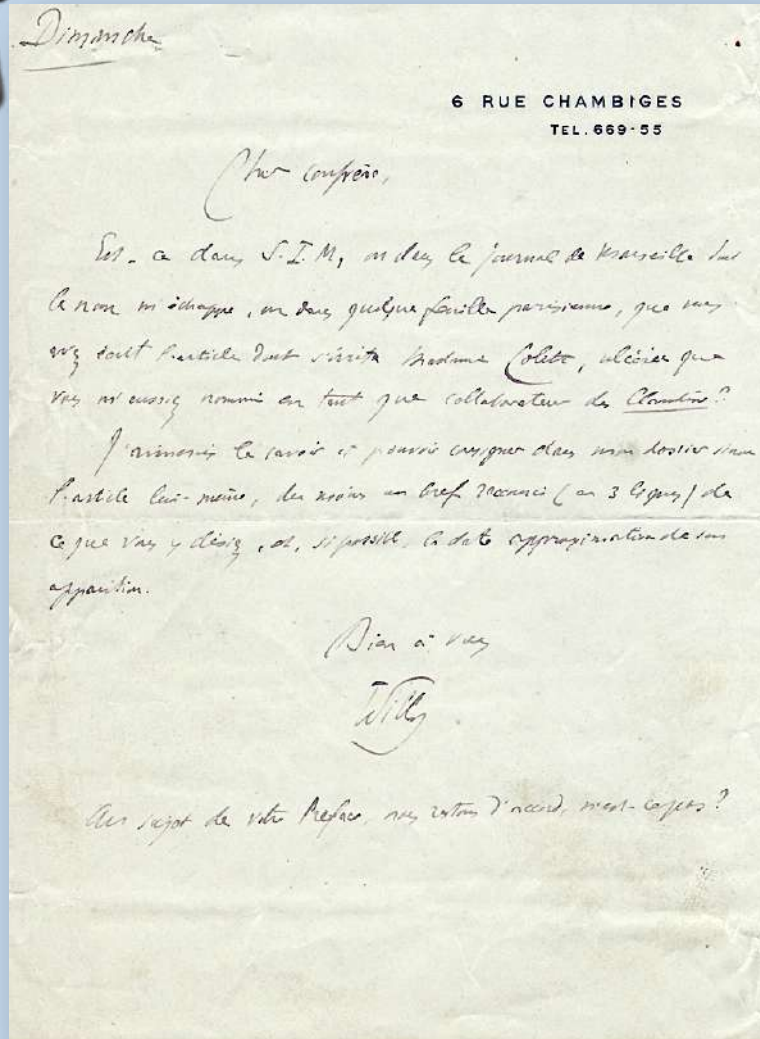 Dimanche
6 RUE CHAMBIGES
TEL. 669-55
Cher confrère,
Est-ce dans S.I.M, ou dans le journal de Marseille dont
le nom m'échappe, ou dans quelque feuille parisienne, que vous
avez écrit l'article dont s'irrite Madame Colette, ulcérée que
vous m'eussiez nommé en tant que collaborateur des Claudine ?
J'aimerais le savoir et pouvoir consigner dans mon dossier sinon
l'article lui-même, du moins un bref raccourci (en 3 lignes) de
ce que vous y désiez, et, si possible, la date approximative de son
apparition.
Bien à vous
Willy
Au sujet de votre Préface, nous restons d'accord, n'est-ce pas ?